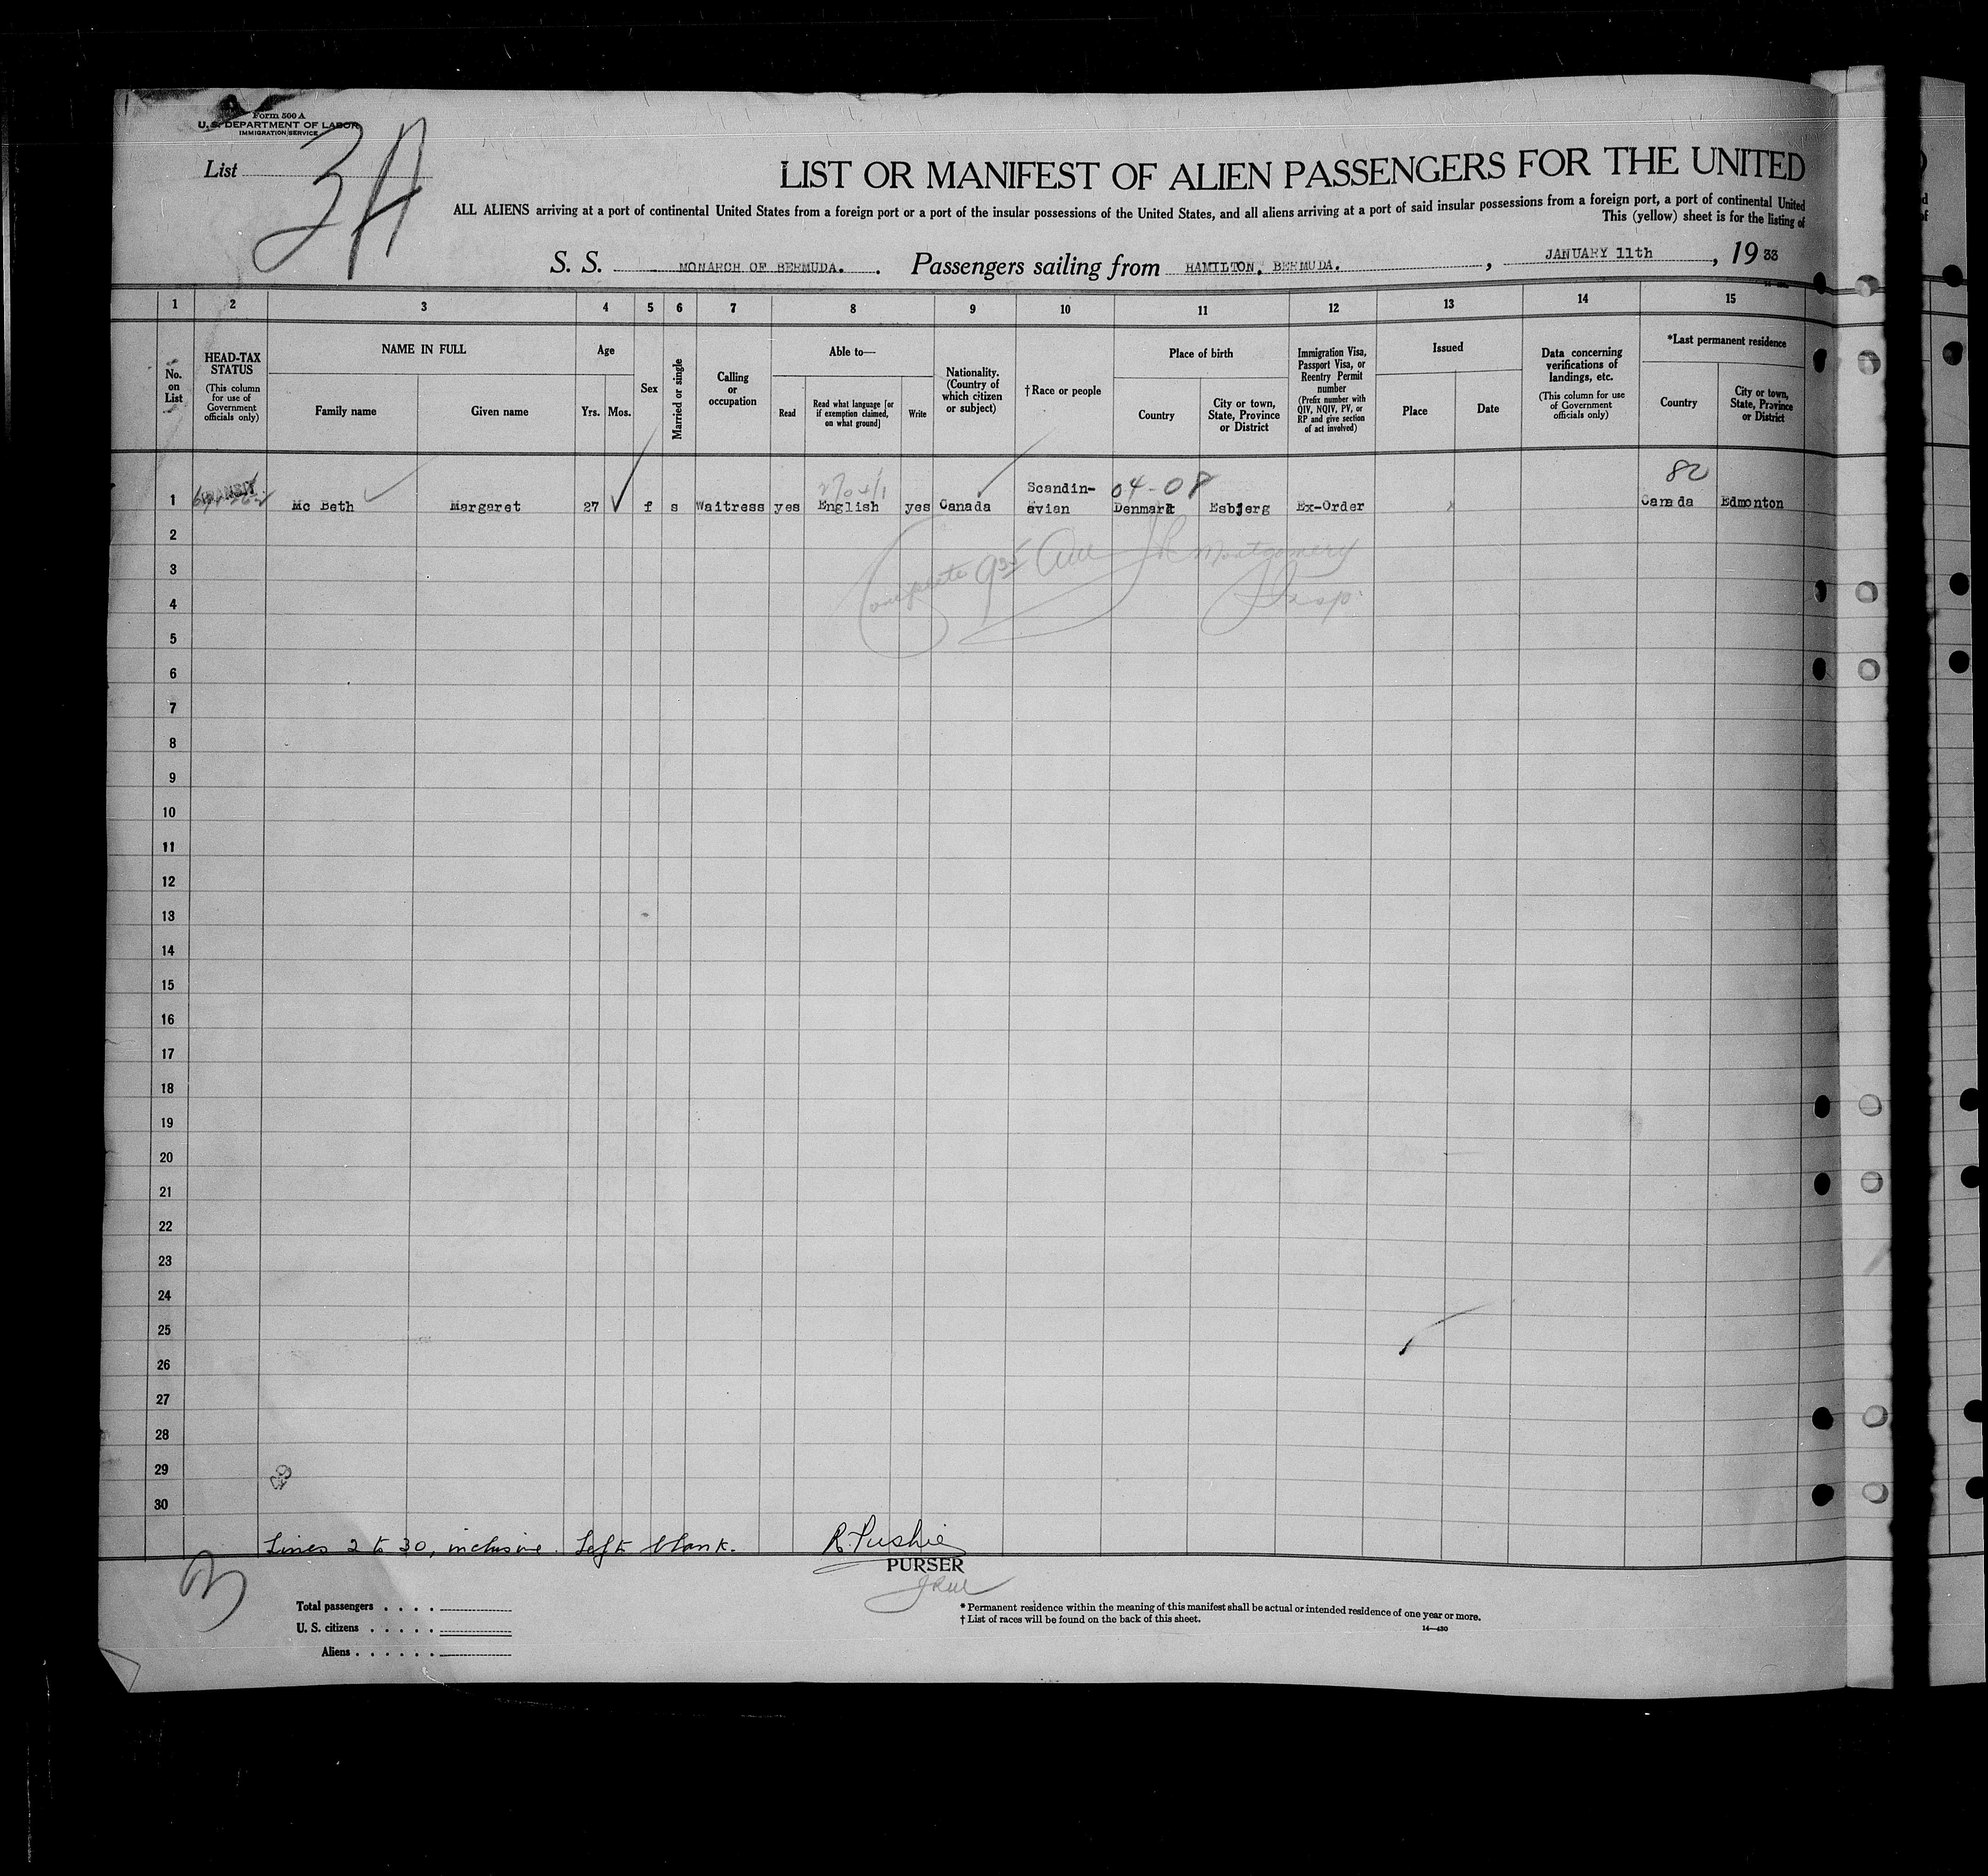 Form 500 A
U. S. DEPARTMENT OF LABOR
IMMIGRATION SERVICE
List 3A
LIST OR MANIFEST OF ALIEN PASSENGERS FOR THE UNITED
ALL ALIENS arriving at a port of continental United States from a foreign port or a port of the insular possessions of the United States, and all aliens arriving at a port of said insular possessions from a foreign port, a port of continental United
This (yellow) sheet is for the listing of
S. S. MONARCH OF BERMUDA. Passengers sailing from HAMILTON, BERMUDA. , JANUARY 11th , 1933
1 2 3 4 5 6 7 8 9 10 11 12 13 14 15
No. on List
HEAD-TAX STATUS (This column for use of Government officials only)
NAME IN FULL
Family name Given name
Age
Yrs. Mos.
Sex
Married or single
Calling or occupation
Able to—
Read Read what language [or if exemption claimed, on what ground] Write
Nationality. (Country of which citizen or subject)
†Race or people
Place of birth
Country City or town, State, Province or District
Immigration Visa, Passport Visa, or Reentry Permit number (Prefix number with QIV, NQIV, PV, or RP and give section of act involved)
Issued
Place Date
Data concerning verifications of landings, etc. (This column for use of Government officials only)
*Last permanent residence
Country City or town, State, Province or District
04-08 82
1 TRANSIT Mc Beth Margaret 27 f s Waitress yes English yes Canada Scandin-avian Denmark Esbjerg Ex-Order Canada Edmonton
2
3
4
5
6
7
8
9
10
11
12
13
14
15
16
17
18
19
20
21
22
23
24
25
26
27
28
29
30
Montgomery
Insp.
Lines 2 to 30, inclusive. Left blank. R. Pushie
PURSER
Total passengers . . . .
U. S. citizens . . . . .
Aliens . . . . . .
* Permanent residence within the meaning of this manifest shall be actual or intended residence of one year or more.
† List of races will be found on the back of this sheet.
14—430